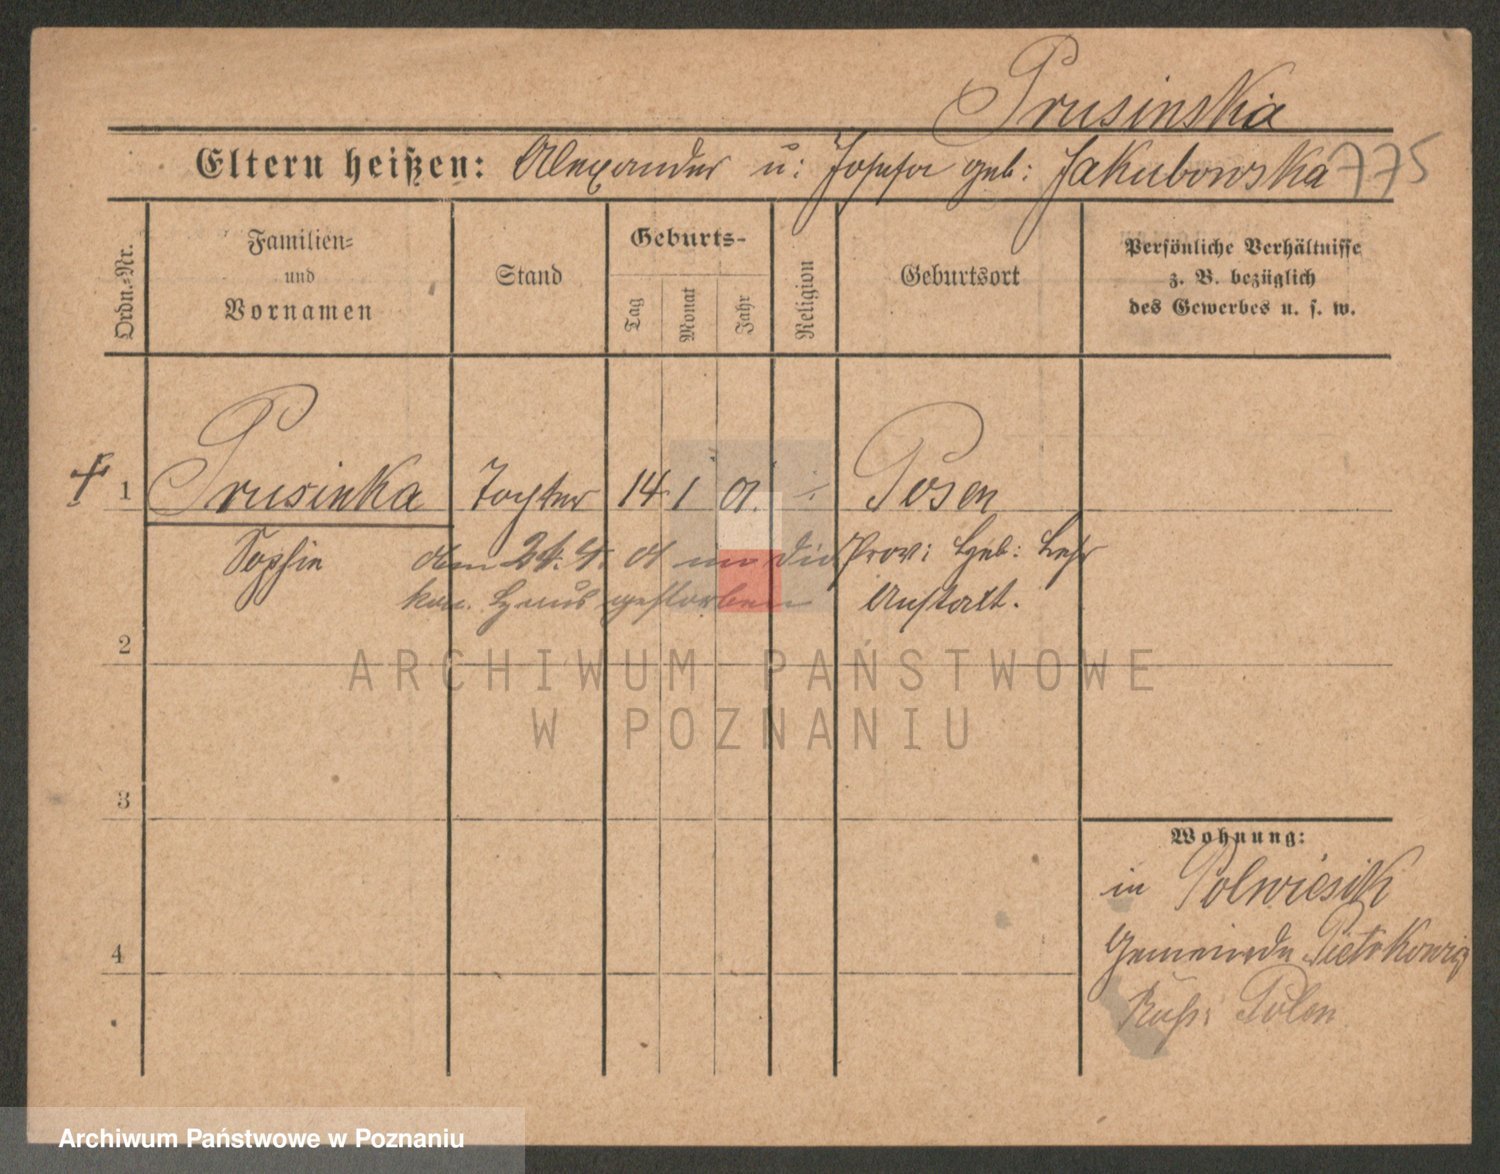 Prusinska
Eltern heißen: Alexander u: Josefa geb: Jakubowska 775
Ordn.-Nr.
Familien-
und
Vornamen
Stand
Geburts-
Tag
Monat
Jahr
Religion
Geburtsort
Persönliche Verhältnisse
z. B. bezüglich
des Gewerbes u. s. w.
† 1 Prusinka Tochter 14 1 01. ÷ Posen
Sophie den 24. 4. 01 in die Prov: Heb: Lehr
Haus gestorben Anstalt.
2
3
4
Wohnung:
in Polwiesik
Gemeinde
Russ: Polen
ARCHIWUM PAŃSTWOWE
W POZNANIU
Archiwum Państwowe w Poznaniu